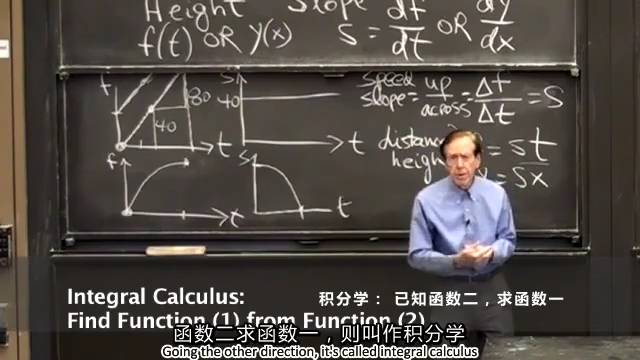 Height Slope df dy
f(t) OR y(x) S = dt OR dx
speed
slope = up/across = Δf/Δt = S
f 80 S
40 40
t t
distance = st
height = sx
f S
t t
Integral Calculus: 积分学： 已知函数二，求函数一
Find Function (1) from Function (2)
函数二求函数一，则叫作积分学
Going the other direction, it's called integral calculus